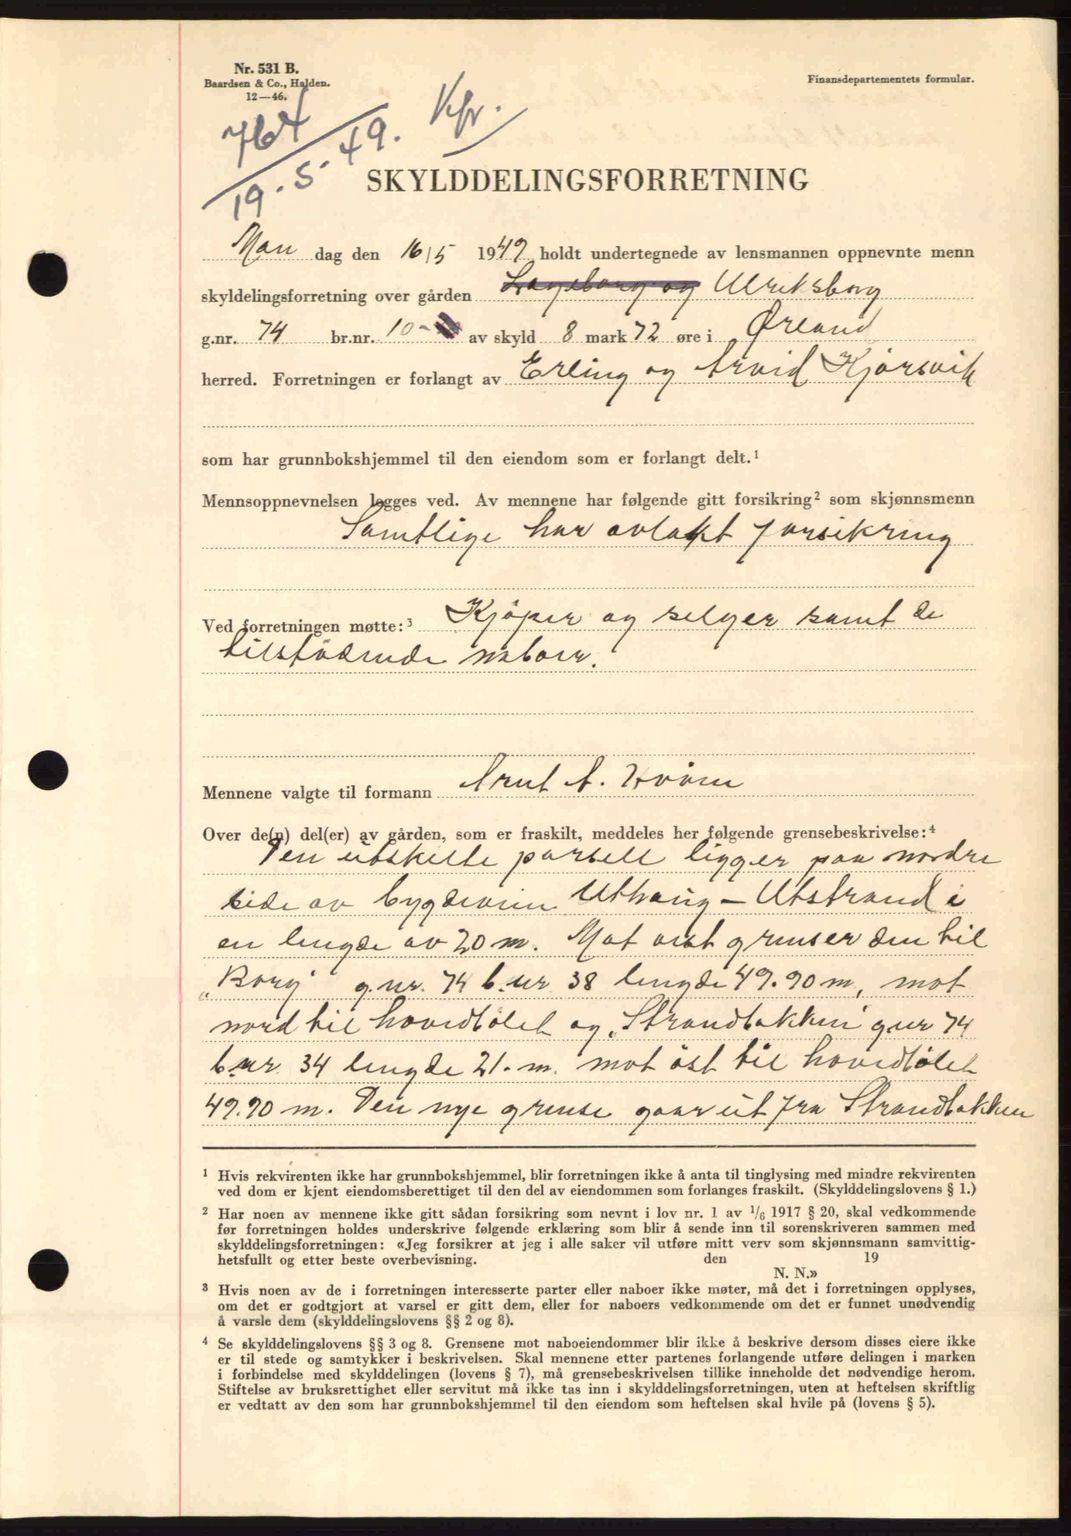 Nr. 531 B.
Baardsen & Co., Halden.
12—46.
Finansdepartementets formular.
764
19-5-49. Kfr.
SKYLDDELINGSFORRETNING
Man dag den 16/5 1949 holdt undertegnede av lensmannen oppnevnte menn
skyldelingsforretning over gården og Ulriksborg
g.nr. 74 br.nr. 10- av skyld 8 mark 72 øre i Ørland
herred. Forretningen er forlangt av Erling og Arvid Kjørsvik
som har grunnbokshjemmel til den eiendom som er forlangt delt.¹
Mennsoppnevnelsen legges ved. Av mennene har følgende gitt forsikring² som skjønnsmenn
Samtlige har avlakt forsikring
Ved forretningen møtte:³ Kjöper og selger samt de
tilstödende naboer.
Mennene valgte til formann Arnt A. Hovem
Over de(n) del(er) av gården, som er fraskilt, meddeles her følgende grensebeskrivelse:⁴
Den utskilte parsell ligger paa nordre
side av bygdeveien Uthaug - Utstrand i
en lengde av 20 m. Mot vest grenser den til
„Borg" g.nr. 74 b.nr 38 lengde 49.90 m, mot
nord til hovedbölet og „Strandbakken" g nr 74
b.nr. 34 lengde 21. m. mot öst til hovedbölet
49.90 m. Den nye grense gaar ut fra Strandbakken
¹ Hvis rekvirenten ikke har grunnbokshjemmel, blir forretningen ikke å anta til tinglysing med mindre rekvirenten
ved dom er kjent eiendomsberettiget til den del av eiendommen som forlanges fraskilt. (Skylddelingslovens § 1.)
² Har noen av mennene ikke gitt sådan forsikring som nevnt i lov nr. 1 av 1/6 1917 § 20, skal vedkommende
før forretningen holdes underskrive følgende erklæring som blir å sende inn til sorenskriveren sammen med
skylddelingsforretningen: «Jeg forsikrer at jeg i alle saker vil utføre mitt verv som skjønnsmann samvittig-
hetsfullt og etter beste overbevisning. den 19
N. N.»
³ Hvis noen av de i forretningen interesserte parter eller naboer ikke møter, må det i forretningen opplyses,
om det er godtgjort at varsel er gitt dem, eller for naboers vedkommende om det er funnet unødvendig
å varsle dem (skylddelingslovens §§ 2 og 8).
⁴ Se skylddelingslovens §§ 3 og 8. Grensene mot naboeiendommer blir ikke å beskrive dersom disses eiere ikke
er til stede og samtykker i beskrivelsen. Skal mennene etter partenes forlangende utføre delingen i marken
i forbindelse med skylddelingen (lovens § 7), må grensebeskrivelsen tillike inneholde det nødvendige herom.
Stiftelse av bruksrettighet eller servitut må ikke tas inn i skylddelingsforretningen, uten at heftelsen skriftlig
er vedtatt av den som har grunnbokshjemmel til den eiendom som heftelsen skal hvile på (lovens § 5).